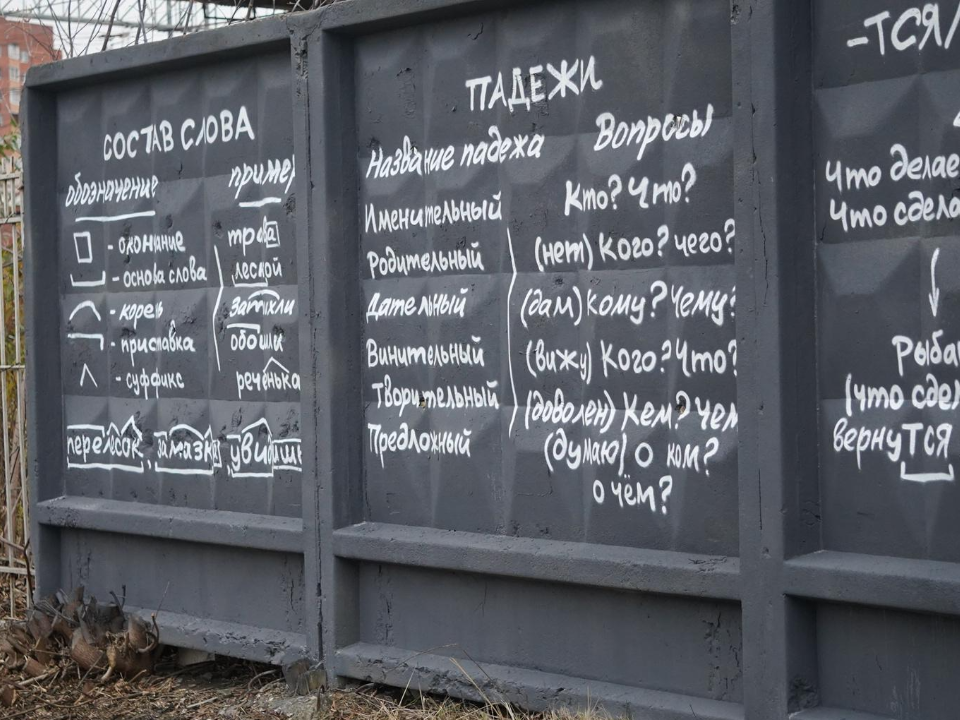 СОСТАВ СЛОВА
обозначение пример
- окончание трава
- основа слова лесной
- корень затихли
- приставка обошли
- суффикс реченька
перелесок, замазка, увидишь
ПАДЕЖИ
Название падежа Вопросы
Именительный Кто? Что?
Родительный (нет) Кого? чего?
Дательный (дам) Кому? Чему?
Винительный (вижу) Кого? Что?
Творительный (доволен) Кем? Чем
Предложный (думаю) О ком?
О чём?
-ТСЯ/
Что делае
Что сдела
Рыба
(что сдел
вернуТСЯ